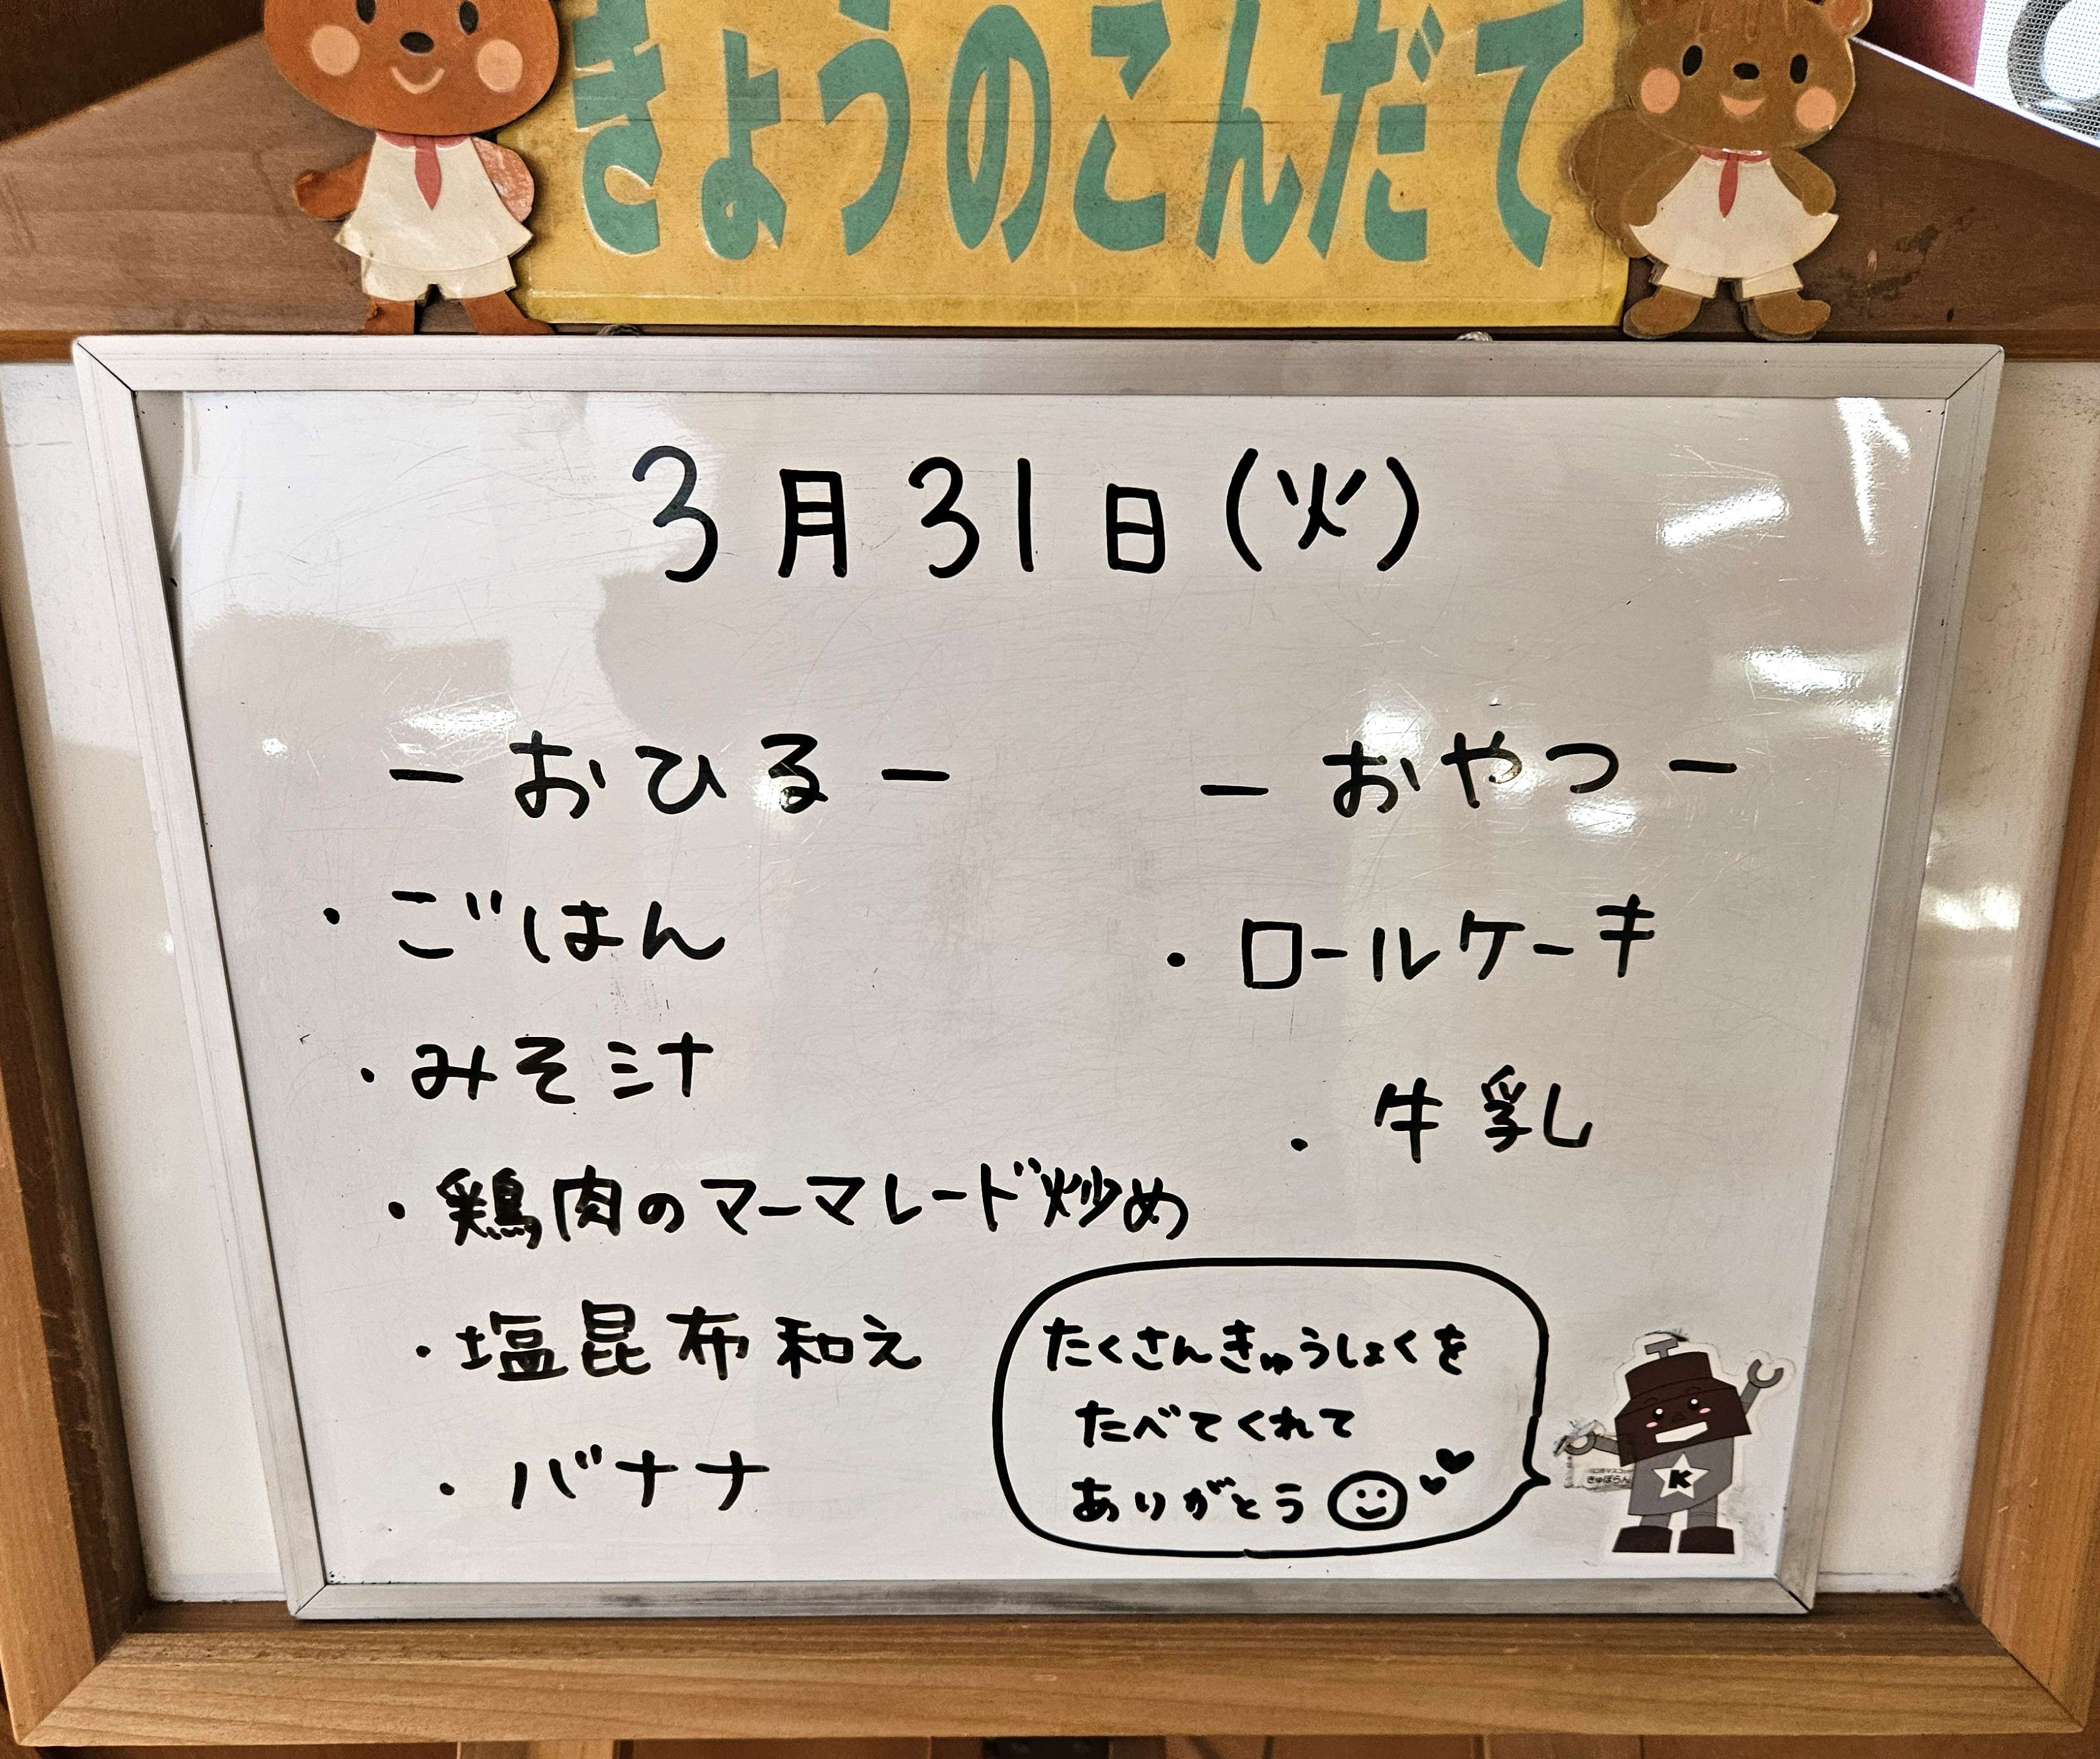 きょうのこんだて
3月31日(火)
ーおひるー
・ごはん
・みそ汁
・鶏肉のマーマレード炒め
・塩昆布和え
・バナナ
ーおやつー
・ロールケーキ
・牛乳
たくさんきゅうしょくを
たべてくれて
ありがとう
きゅぽらん
K